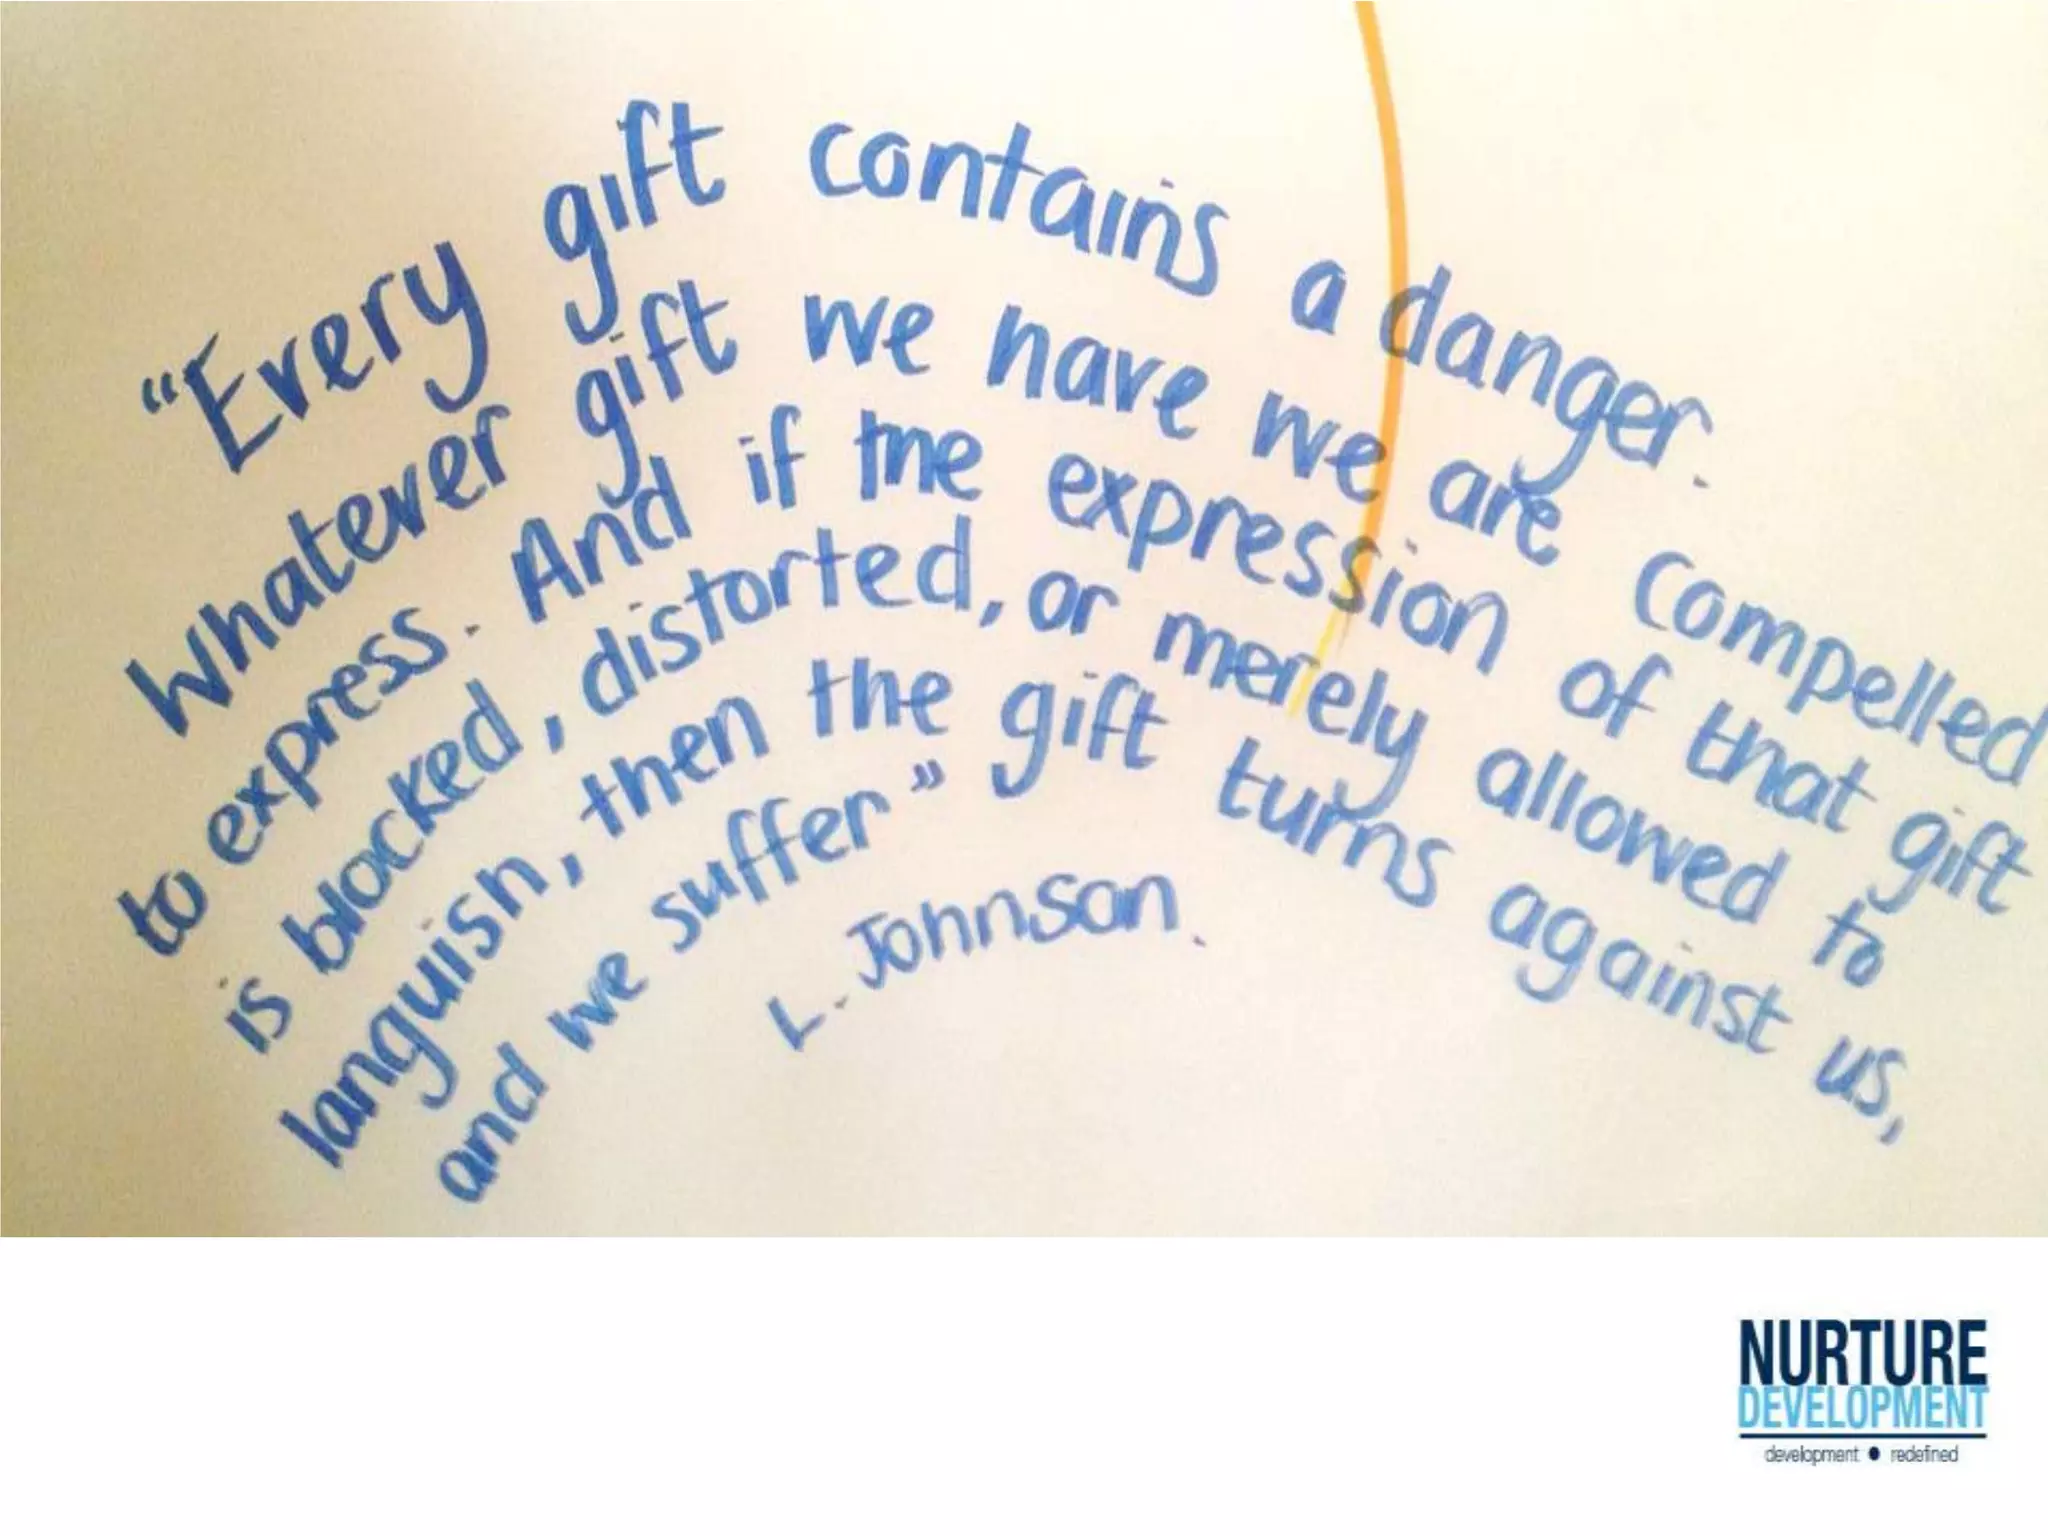 "Every gift contains a danger.
Whatever gift we have we are compelled
to express. And if the expression of that gift
is blocked, distorted, or merely allowed to
languish, then the gift turns against us,
and we suffer"
L. Johnson.
NURTURE
DEVELOPMENT
development • redefined